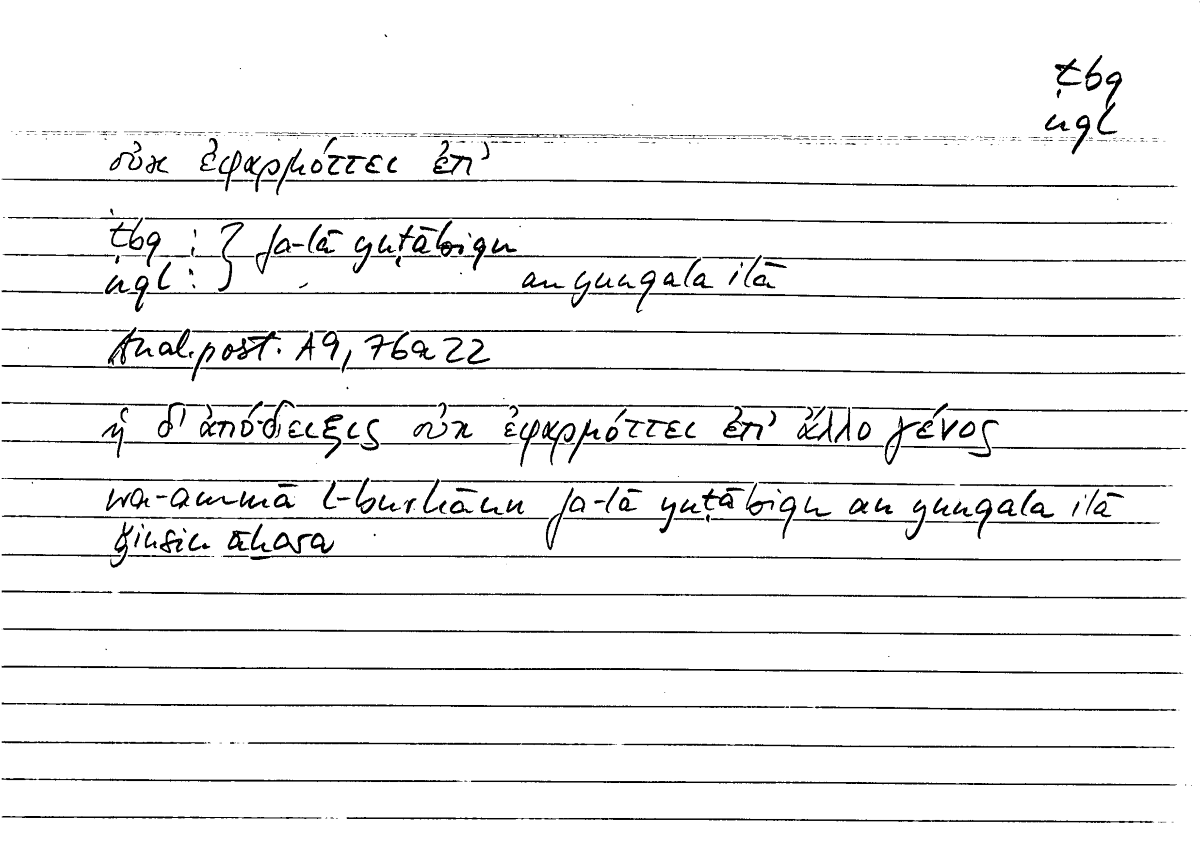 ṭbq
nql
οὐκ ἐφαρμόττει ἐπ’
ṭbq : } fa-lā yuṭābiqu
nql : } an yunqala ilā
Anal. post. A9, 76a22
ἡ δ’ ἀπόδειξις οὐκ ἐφαρμόττει ἐπ’ ἄλλο γένος
wa-ammā l-burhānu fa-lā yuṭābiqu an yunqala ilā
ǧinsin āḫara